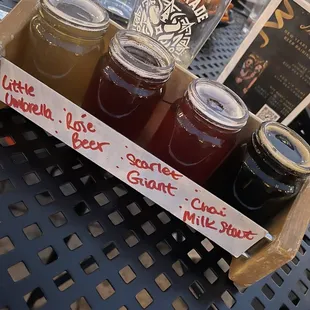 Little
Umbrella
Rosie
Beer
Scarlet
Giant
Chai
Milk Stout